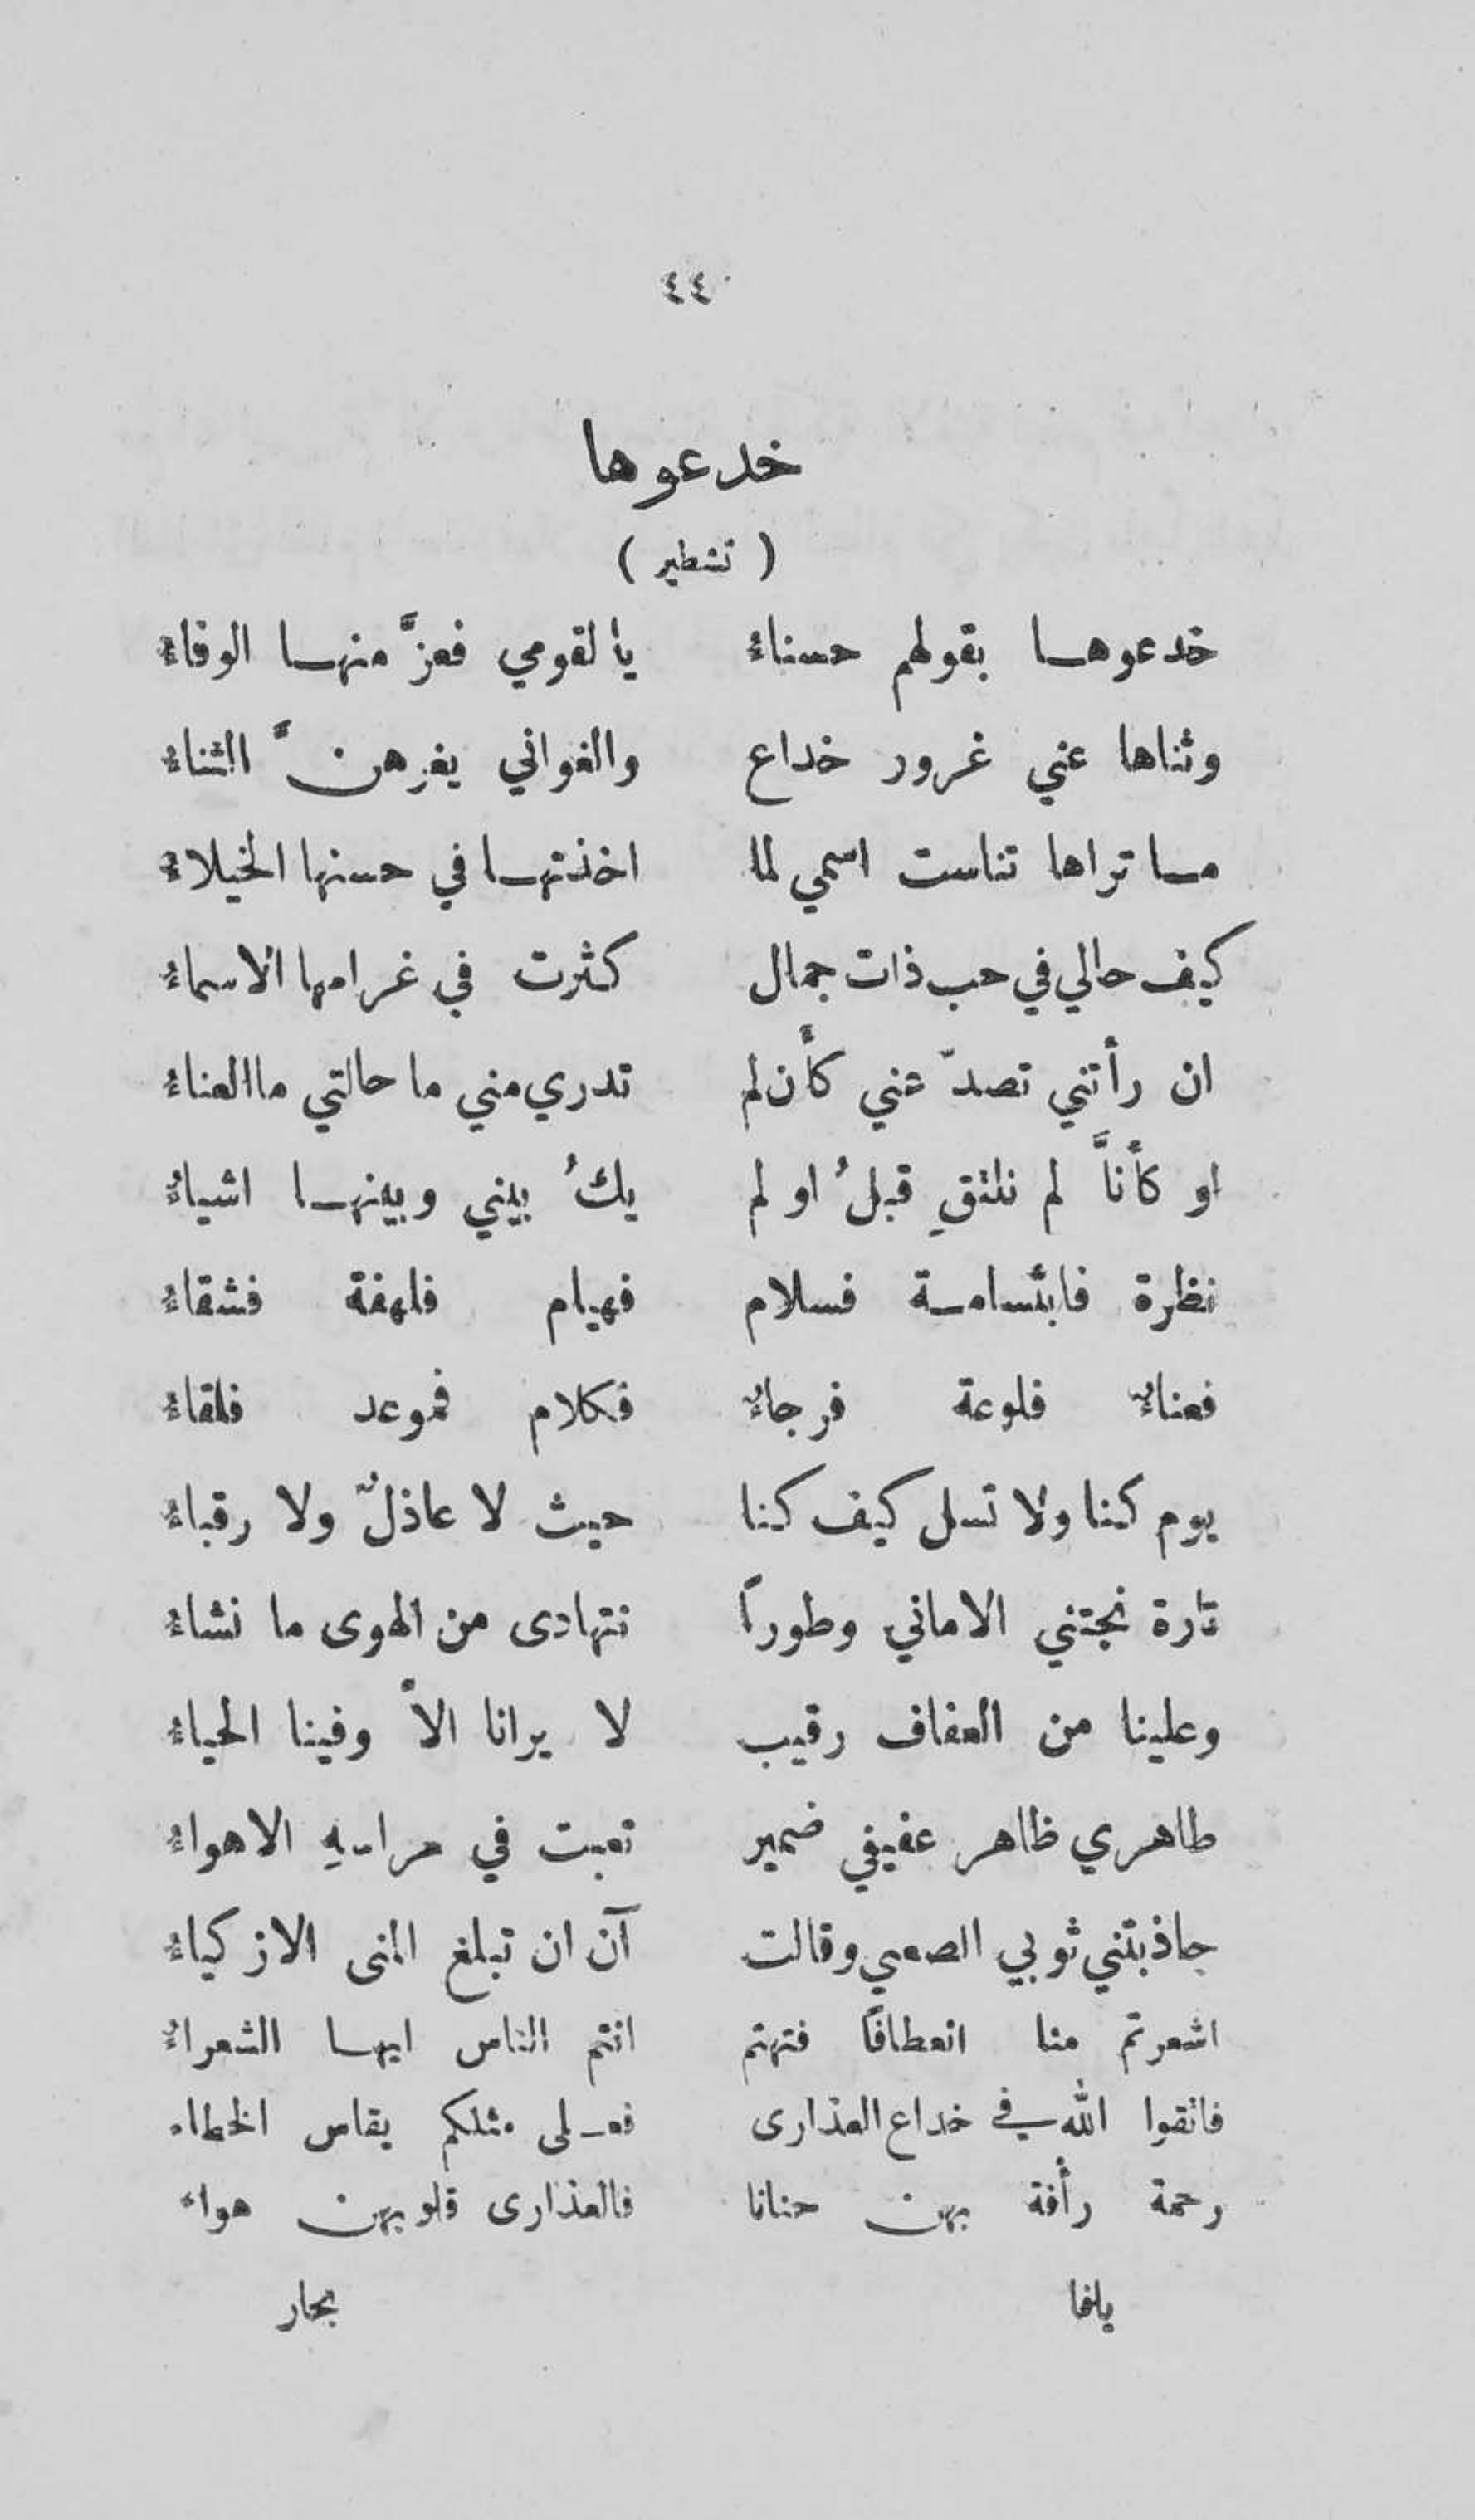 ٤٤
خدعوها
( تشطير )
خدعوهـا بقولهم حسناءُ يا لقومي فعزَّ منهـا الوفاءُ
وثناها عني غرور خداع والغواني يغرهنَّ الثناءُ
مـا تراها تناست اسمي لما اخذتهـا في حسنها الخيلاءُ
كيف حالي في حب ذات جمال كثرت في غرامها الاسماءُ
ان رأتني تصدّ عني كأن لم تدري مني ما حالتي ما العناءُ
او كأنَّا لم نلتقِ قبلُ او لم يكُ بيني وبينهـا اشياءُ
نظرة فابتسامـة فسلام فهيام فلهفة فشقاءُ
فعناءٌ فلوعة فرجاءٌ فكلام فموعد فلقاءُ
يوم كنا ولا تسل كيف كنا حيث لا عاذلٌ ولا رقباءُ
تارة نجتني الاماني وطوراً نتهادى من الهوى ما نشاءُ
وعلينا من العفاف رقيب لا يرانا الاَّ وفينا الحياءُ
طاهري ظاهر عفيفي ضمير تعبت في مراسهِ الاهواءُ
جاذبتني ثوبي العصي وقالت آن ان تبلغ المنى الازكياءُ
اشعرتم منا انعطافاً فتهتم انتم الناس ايهـا الشعراءُ
فاتقوا الله في خداع العذارى فعـلى مثلكم يقاس الخطاء
رحمة رأفة بهن حنانا فالعذارى قلوبهن هواء
يافا بحار